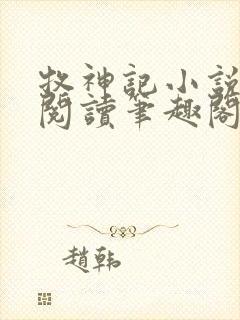 牧神記小說
閱讀筆趣閣
趙韓